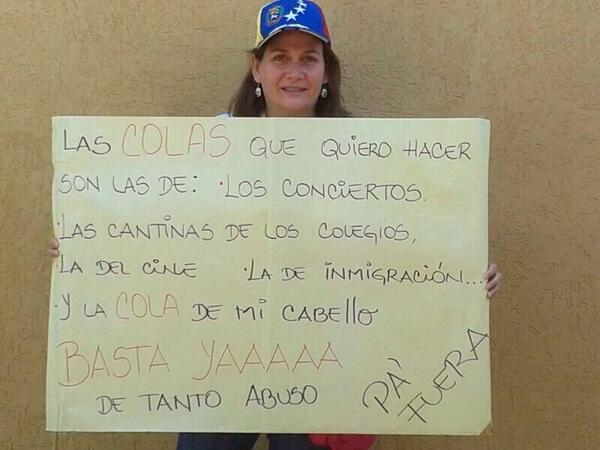 LAS COLAS QUE QUIERO HACER
SON LAS DE: • LOS CONCIERTOS,
• LAS CANTINAS DE LOS COLEGIOS,
• LA DEL CINE • LA DE INMIGRACIÓN...
• Y LA COLA DE MI CABELLO
BASTA YAAAAA
DE TANTO ABUSO
PA' FUERA